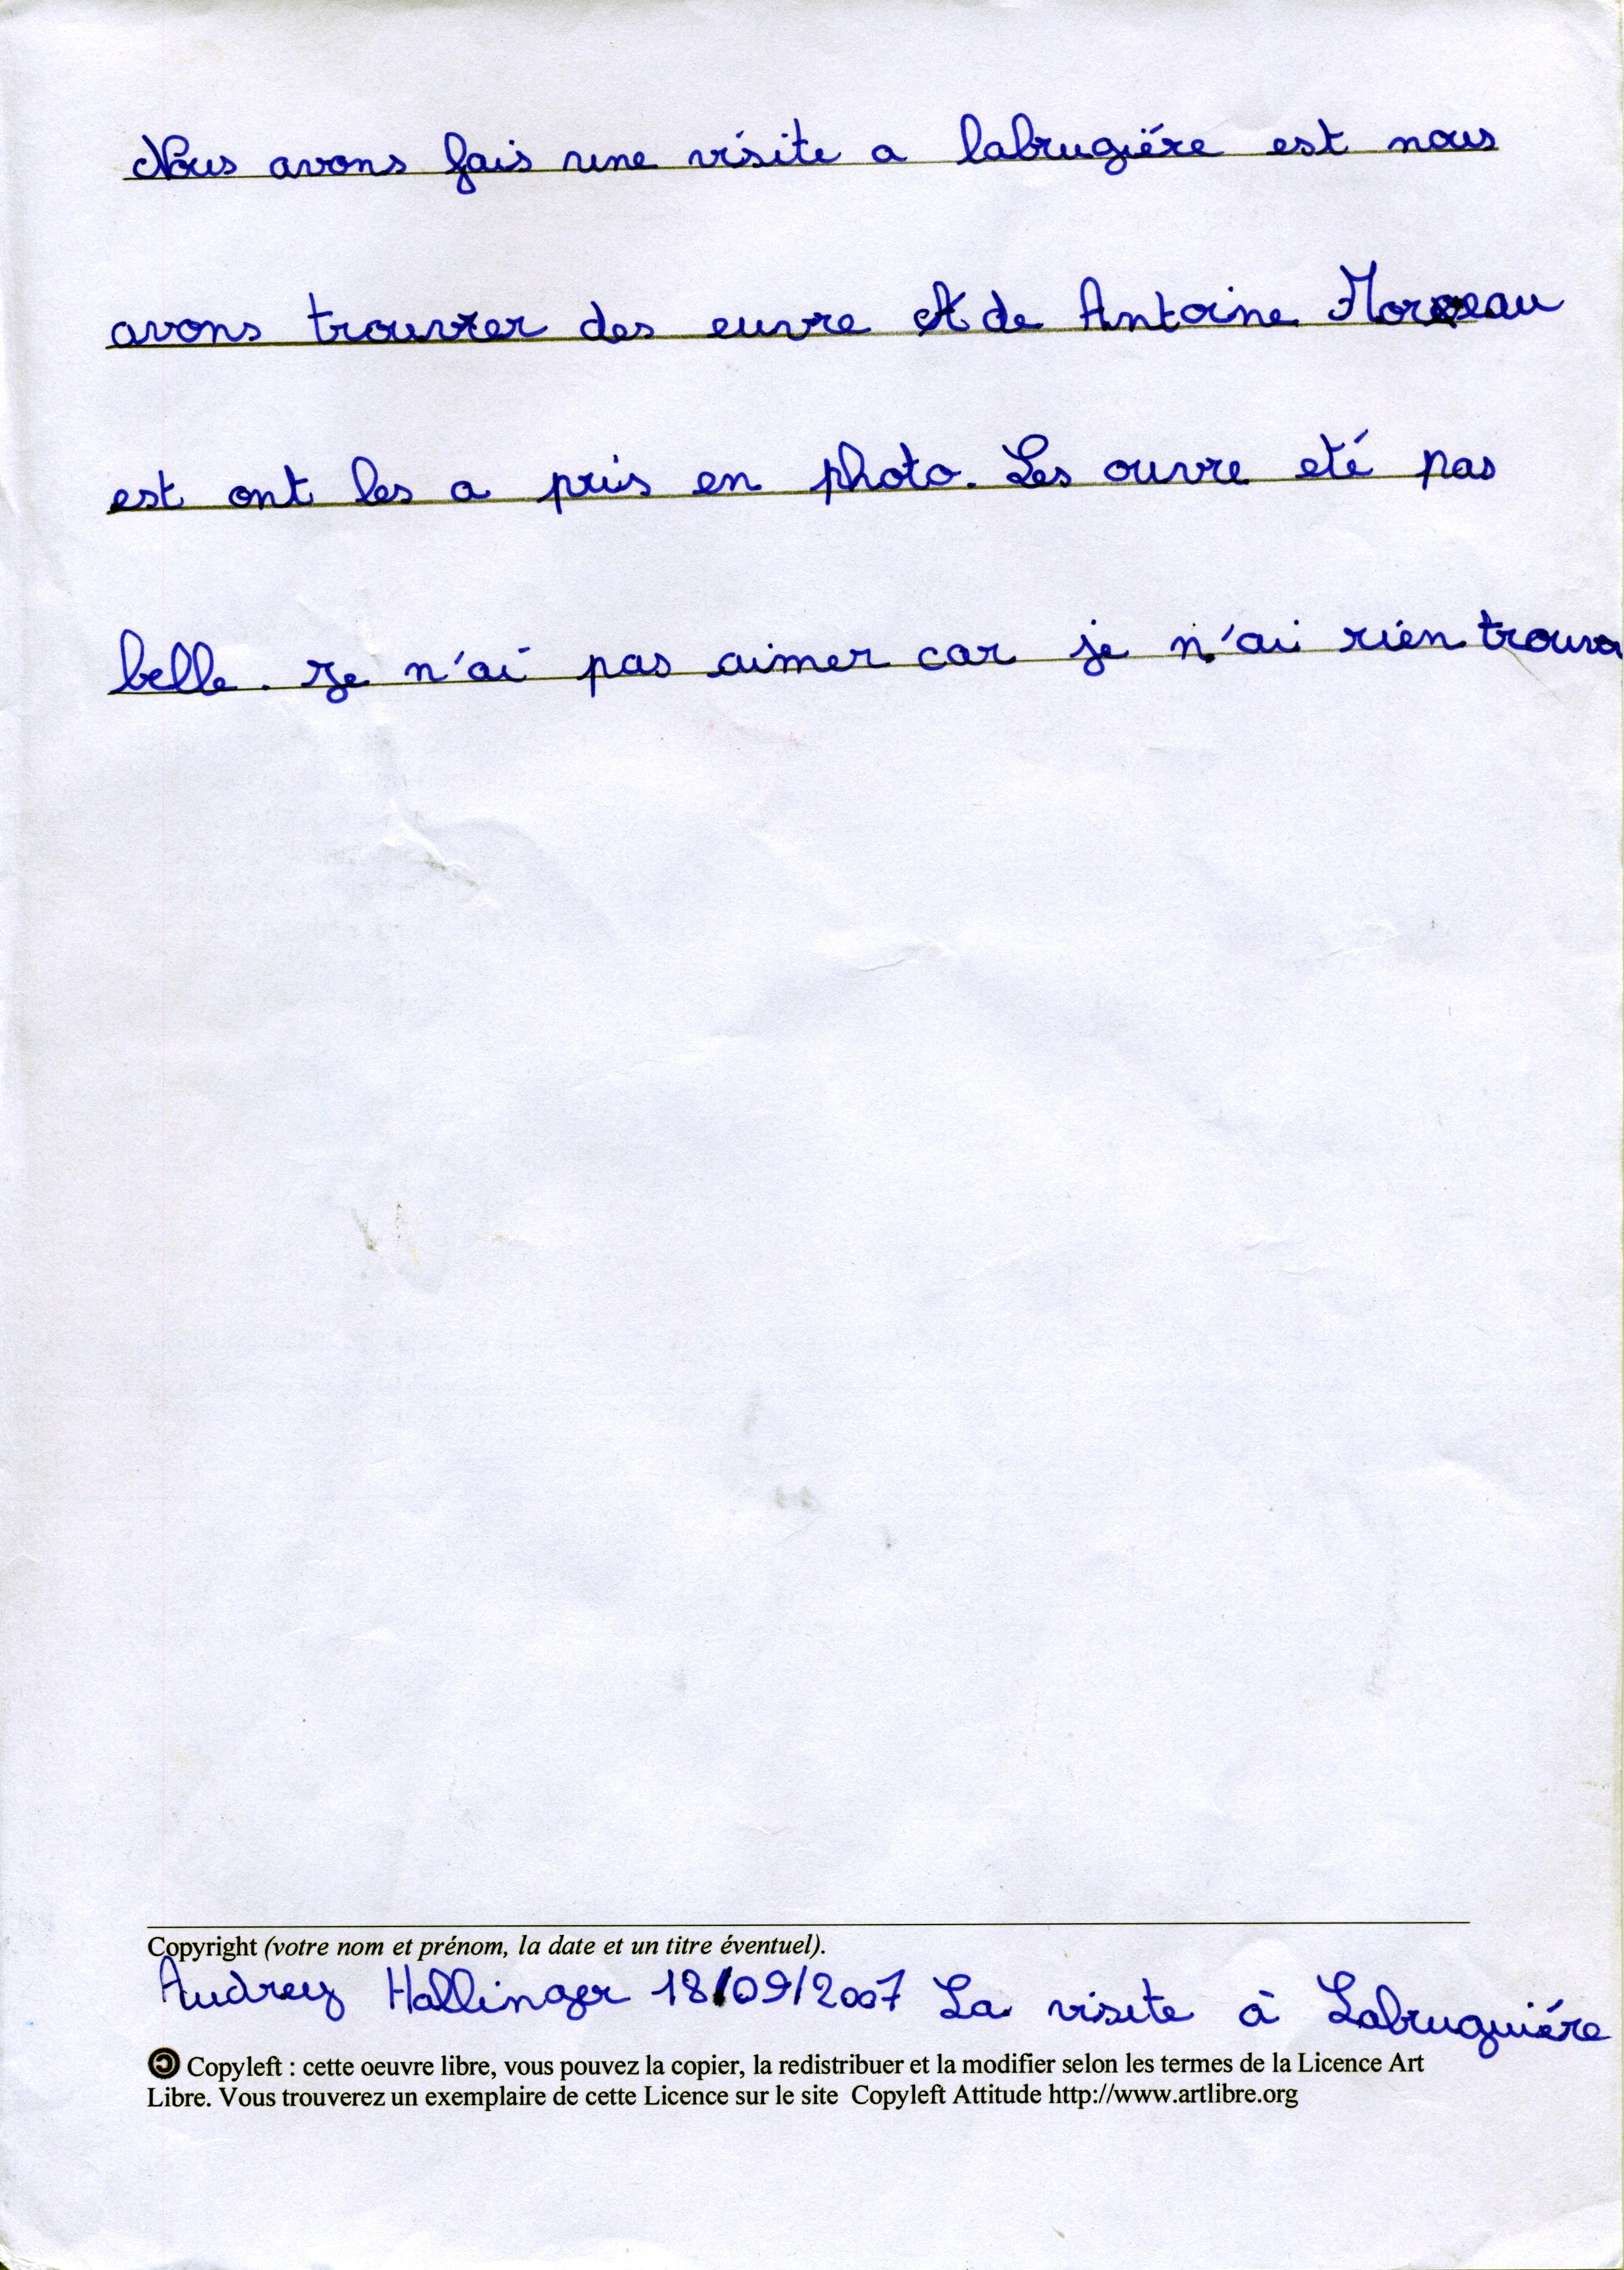 Nous avons fais une visite a labrugiére est nous
avons trouver des euvre de Antoine Moreau
est ont les a pris en photo. Les ouvre eté pas
belle. Je n'ai pas aimer car je n'ai rien trouva
Copyright (votre nom et prénom, la date et un titre éventuel).
Audrey Hallinger 18/09/2007 La visite à Labruguiére
Copyleft : cette oeuvre libre, vous pouvez la copier, la redistribuer et la modifier selon les termes de la Licence Art
Libre. Vous trouverez un exemplaire de cette Licence sur le site Copyleft Attitude http://www.artlibre.org